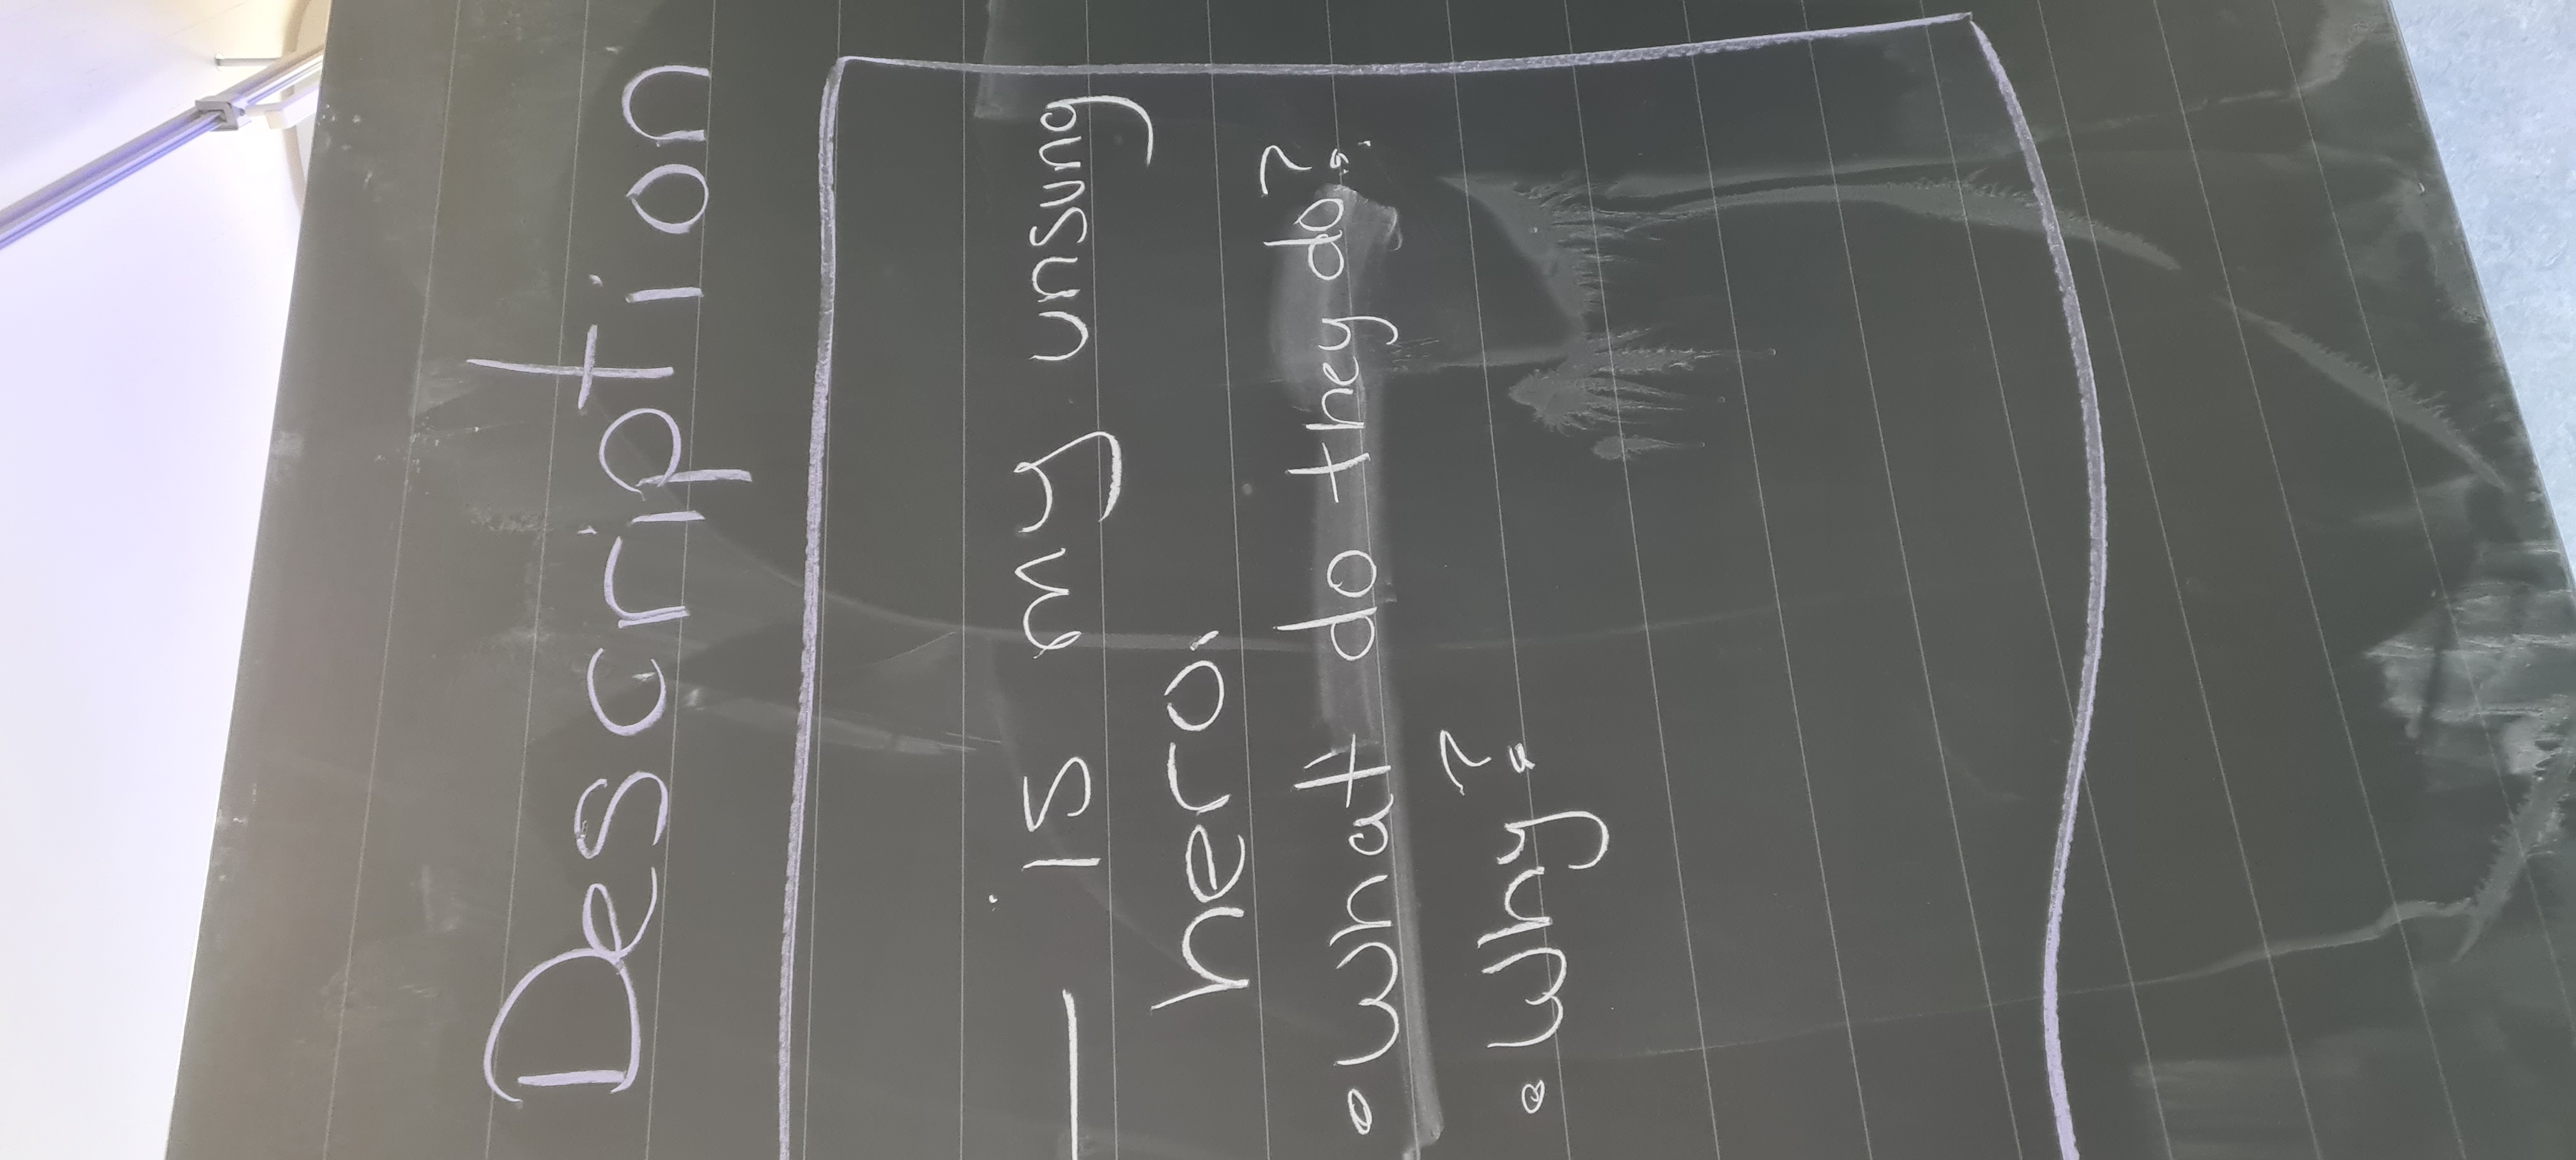 Description
___ is my unsung
hero.
• What do they do?
• Why?